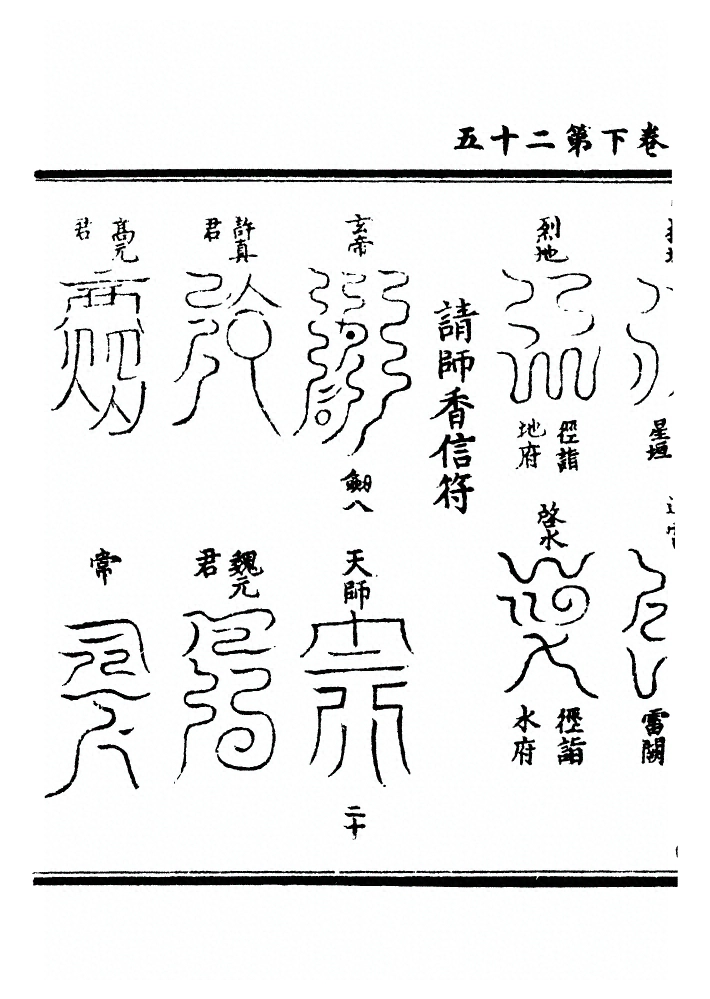 卷下第二十五
星垣
雷關
烈地
徑詣
地府
啓水
徑詣
水府
請師香信符
玄帝
劔八
天師
二十
許真
君
魏元
君
高元
君
常